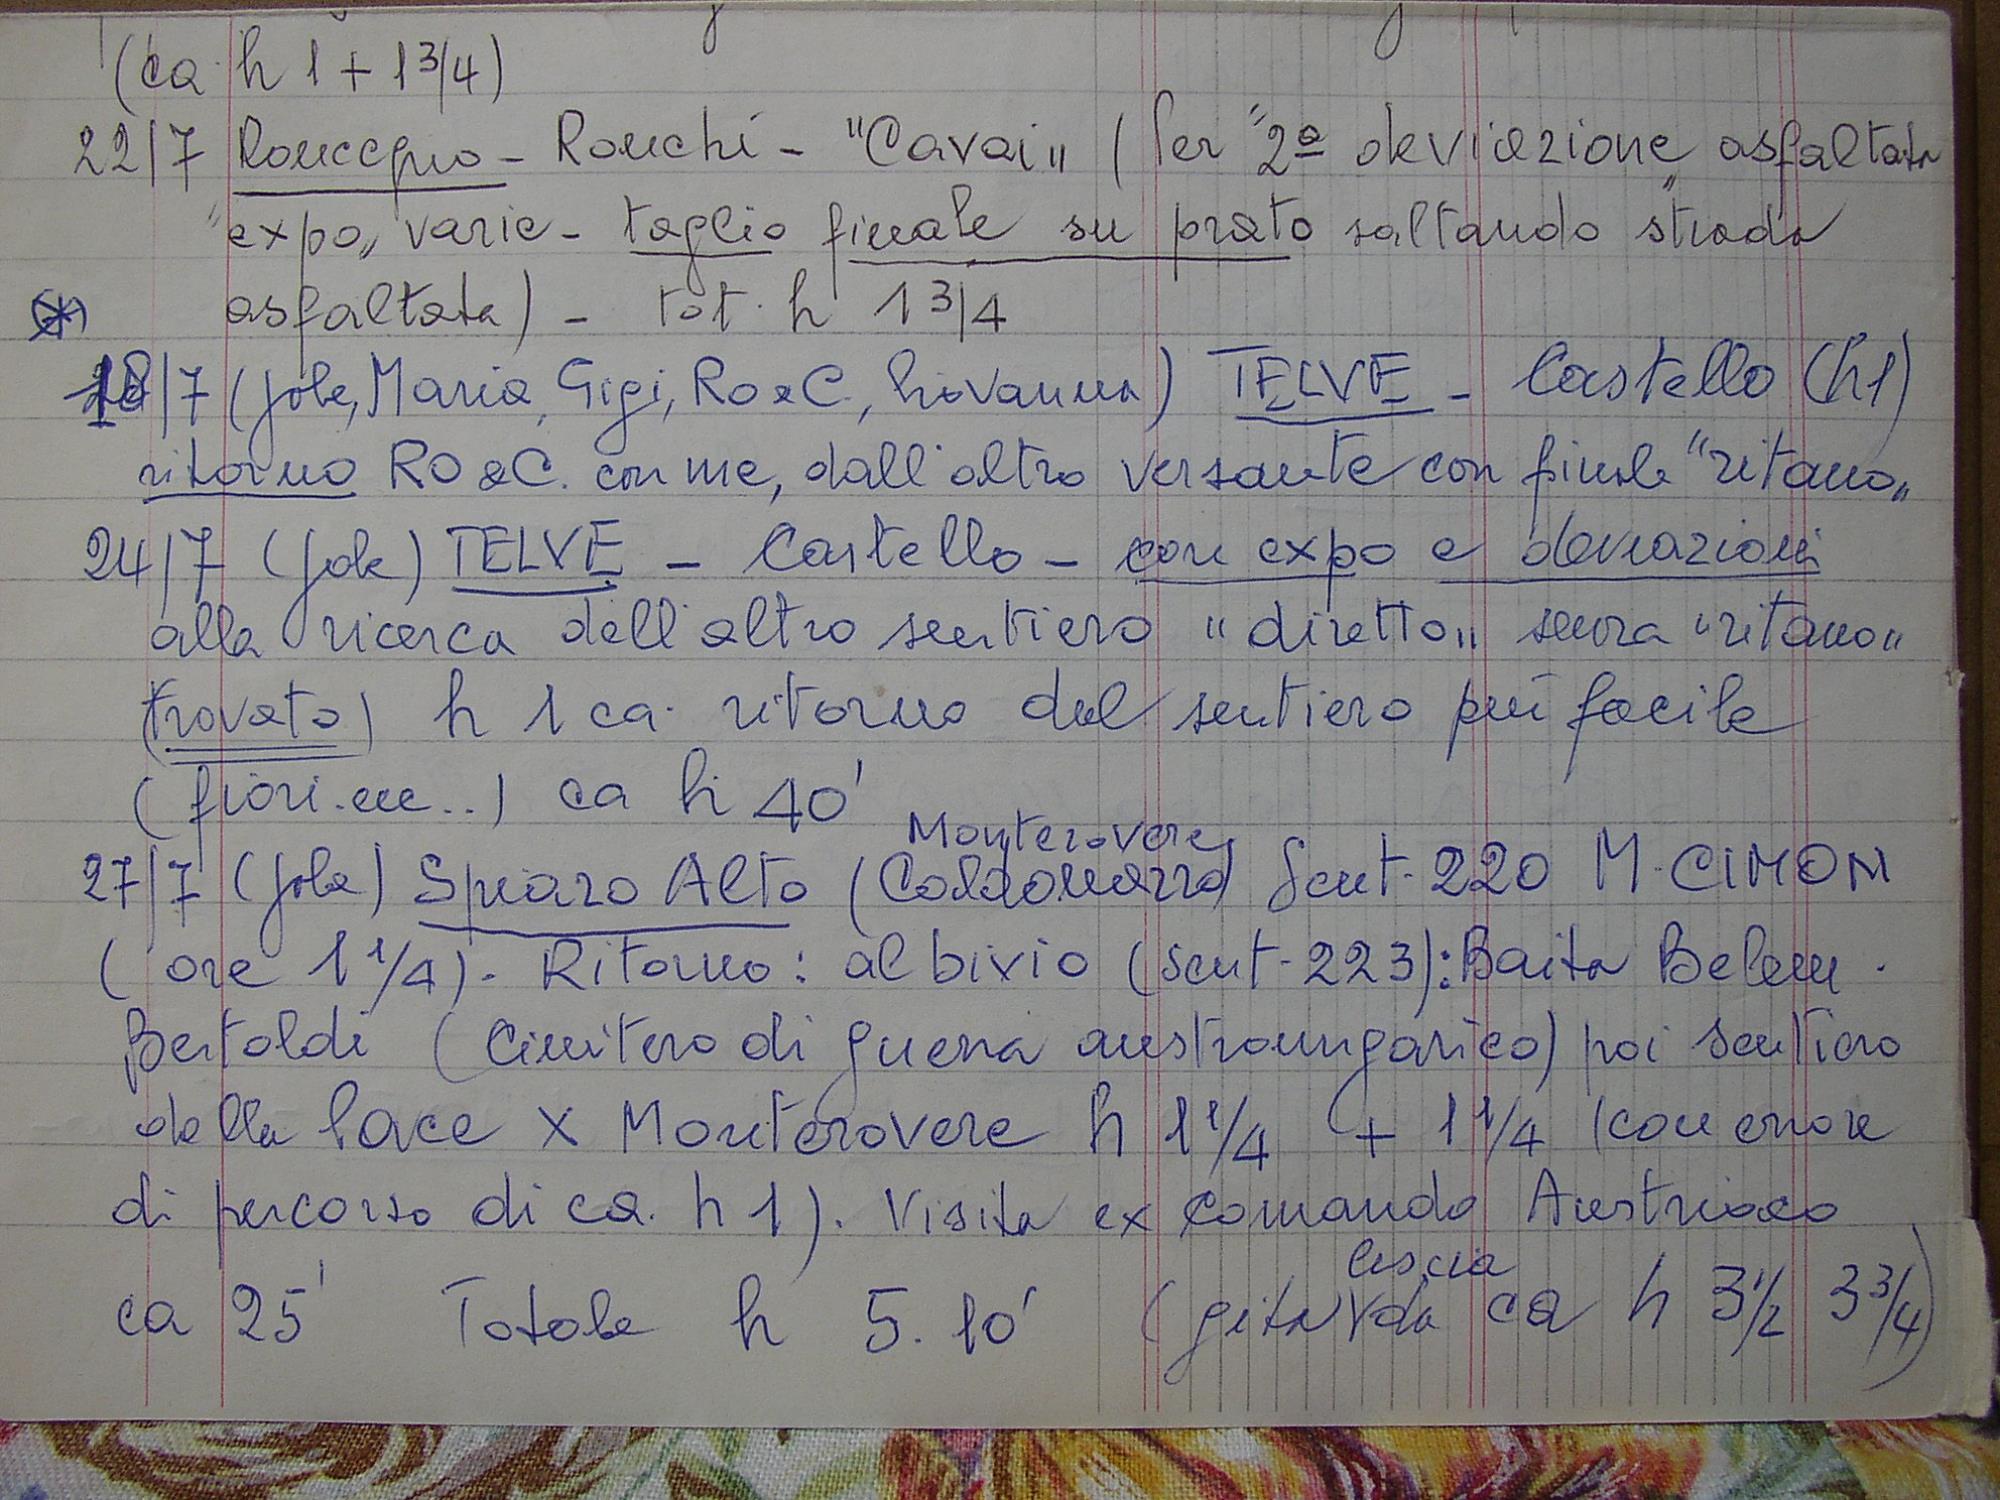 (ca. h 1 + 1 3/4)
22/7 Roncegno - Ronchi - "Cavai" (Per "2ª deviazione" asfaltata
"expo" varie - taglio finale su prato saltando strada
asfaltata) - tot. h 1 3/4
(*)
18/7 (Jole, Maria, Gigi, RO e C., Giovanna) TELVE - Castello (h1)
ritorno RO e C. con me, dall'altro versante con finale "ritano"
24/7 (Jole) TELVE - Castello - con expo e deviazioni
alla ricerca dell'altro sentiero "diretto" senza "ritano"
(trovato) h 1 ca. ritorno dal sentiero più facile
(fiori. ecc..) ca h 40'
Monterovere
27/7 (Jole) Spiazo Alto (Caldonazzo) Sent. 220 M. CIMON
(ore 1 1/4). Ritorno: al bivio (sent. 223): Baita Belem.
Bertoldi (Cimitero di guerra austroungarico) poi sentiero
della Pace x Monterovere h 1 1/4 + 1 1/4 (con errore
di percorso di ca. h 1). Visita ex Comando Austriaco
liscia
ca 25' Totale h 5.10' (gita da ca h 3 1/2 3 3/4)